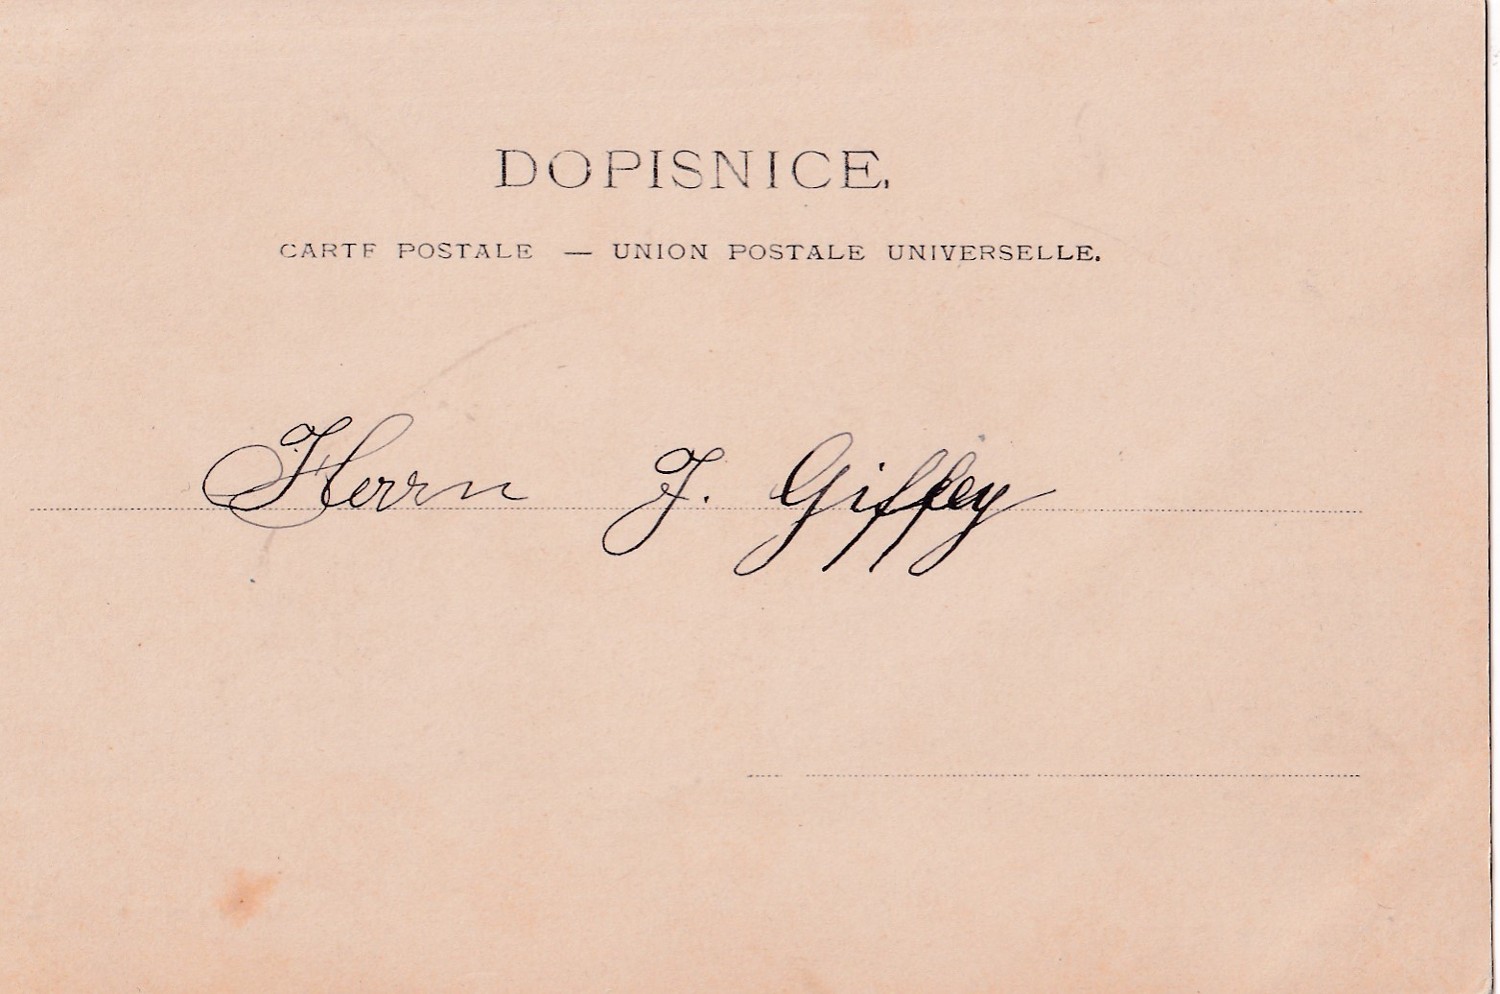 DOPISNICE.
CARTE POSTALE — UNION POSTALE UNIVERSELLE.
Herrn J. Giffey